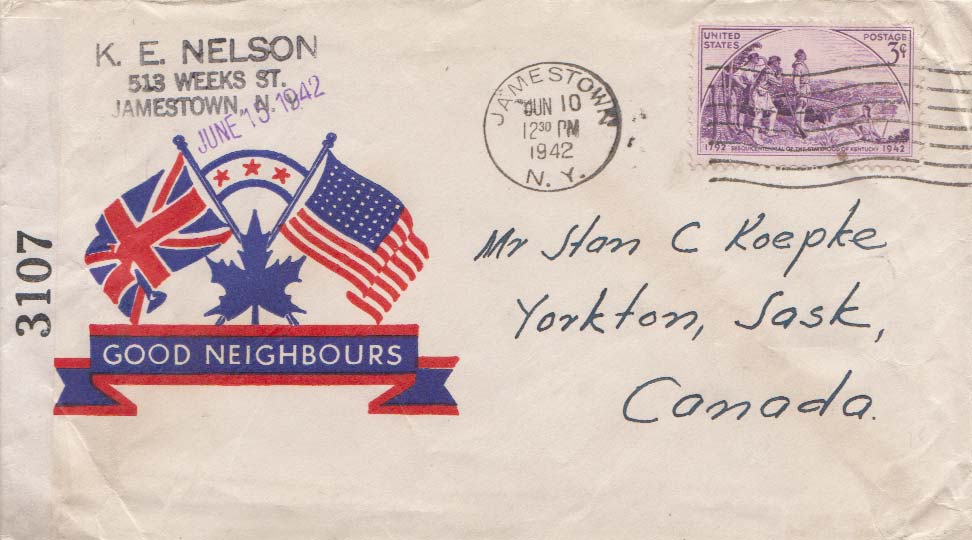 K. E. NELSON
513 WEEKS ST.
JAMESTOWN, N. Y.
JUNE 15 1942
JAMESTOWN
JUN 10
12 30 PM
1942
N. Y.
UNITED STATES
POSTAGE
3¢
1792 SESQUICENTENNIAL OF THE STATEHOOD OF KENTUCKY 1942
Mr Stan C Koepke
Yorkton, Sask,
Canada.
GOOD NEIGHBOURS
3107